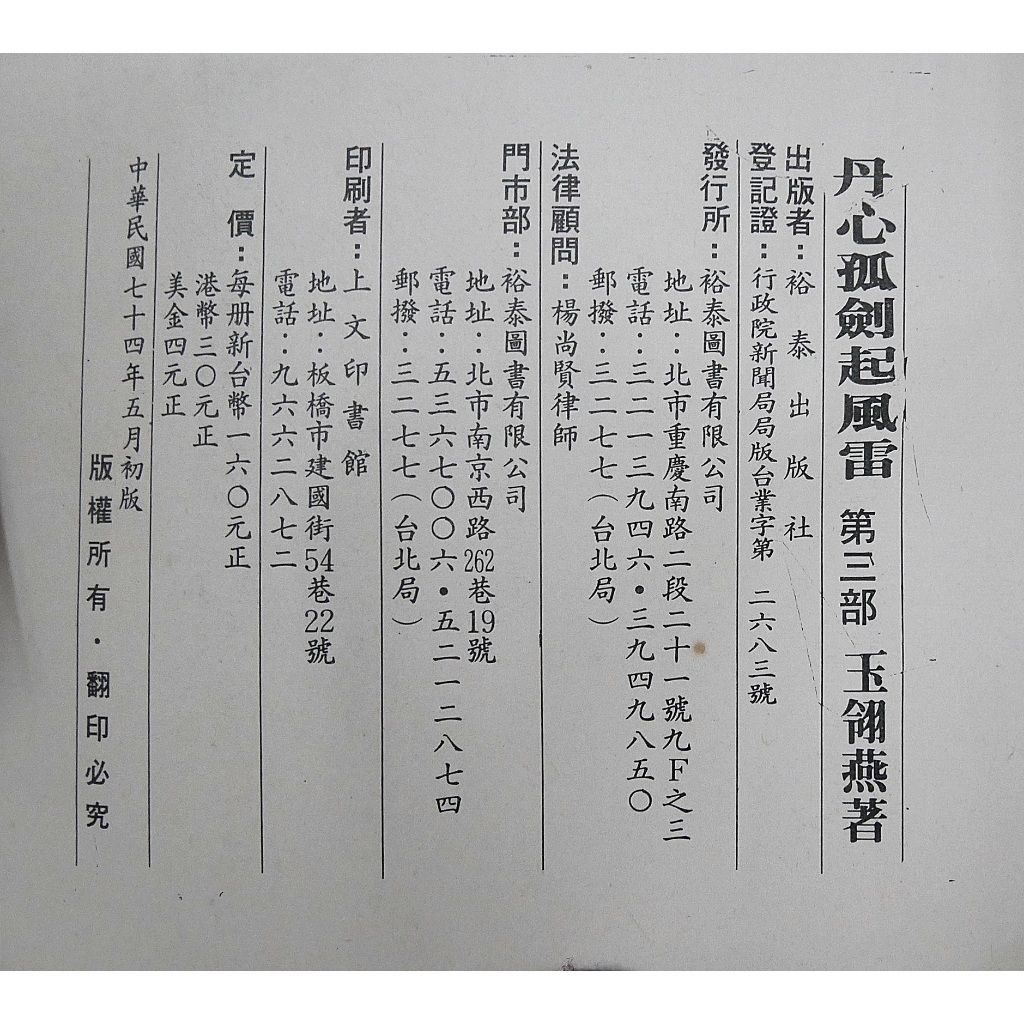 丹心孤劍起風雷 第三部 玉翎燕著
出版者：裕泰出版社
登記證：行政院新聞局局版台業字第 二六八三號
發行所：裕泰圖書有限公司
地址：北市重慶南路二段二十一號九F之三
電話：三二一三九四六・三九四九八五〇
郵撥：三二七七（台北局）
法律顧問：楊尚賢律師
門市部：裕泰圖書有限公司
地址：北市南京西路262巷19號
電話：五三六七〇〇六・五二一二八七四
郵撥：三二七七（台北局）
印刷者：上文印書館
地址：板橋市建國街54巷22號
電話：九六六二八七二
定價：每册新台幣一六〇元正
港幣三〇元正
美金四元正
中華民國七十四年五月初版
版權所有・翻印必究